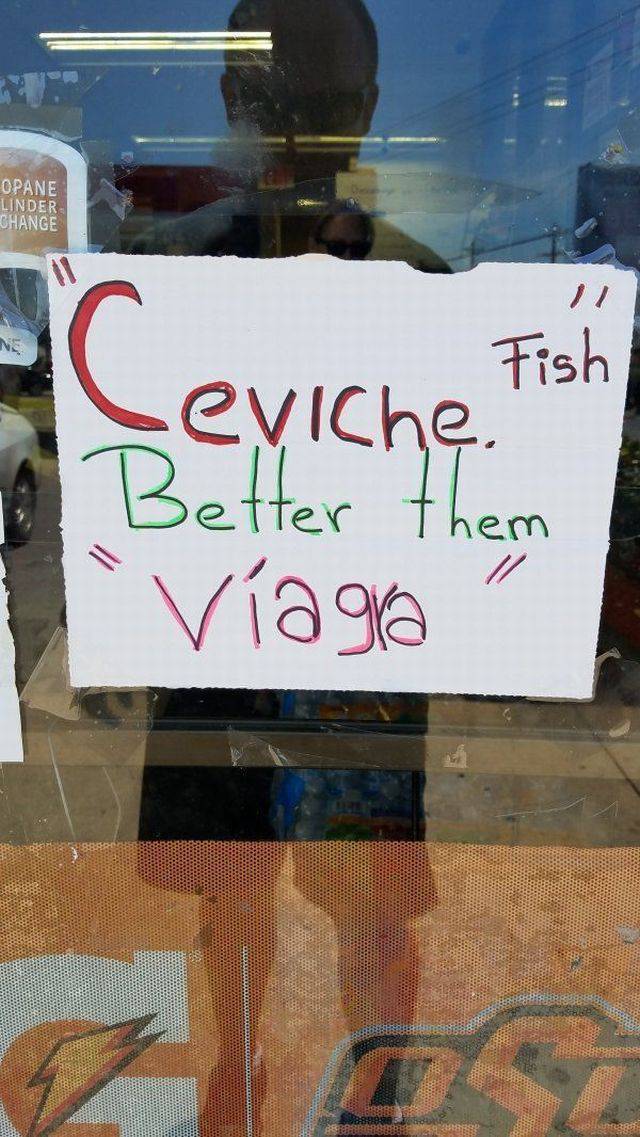 OPANE
LINDER
CHANGE
NE
"Ceviche. Fish"
Better them
"Viagra"
G
OSU